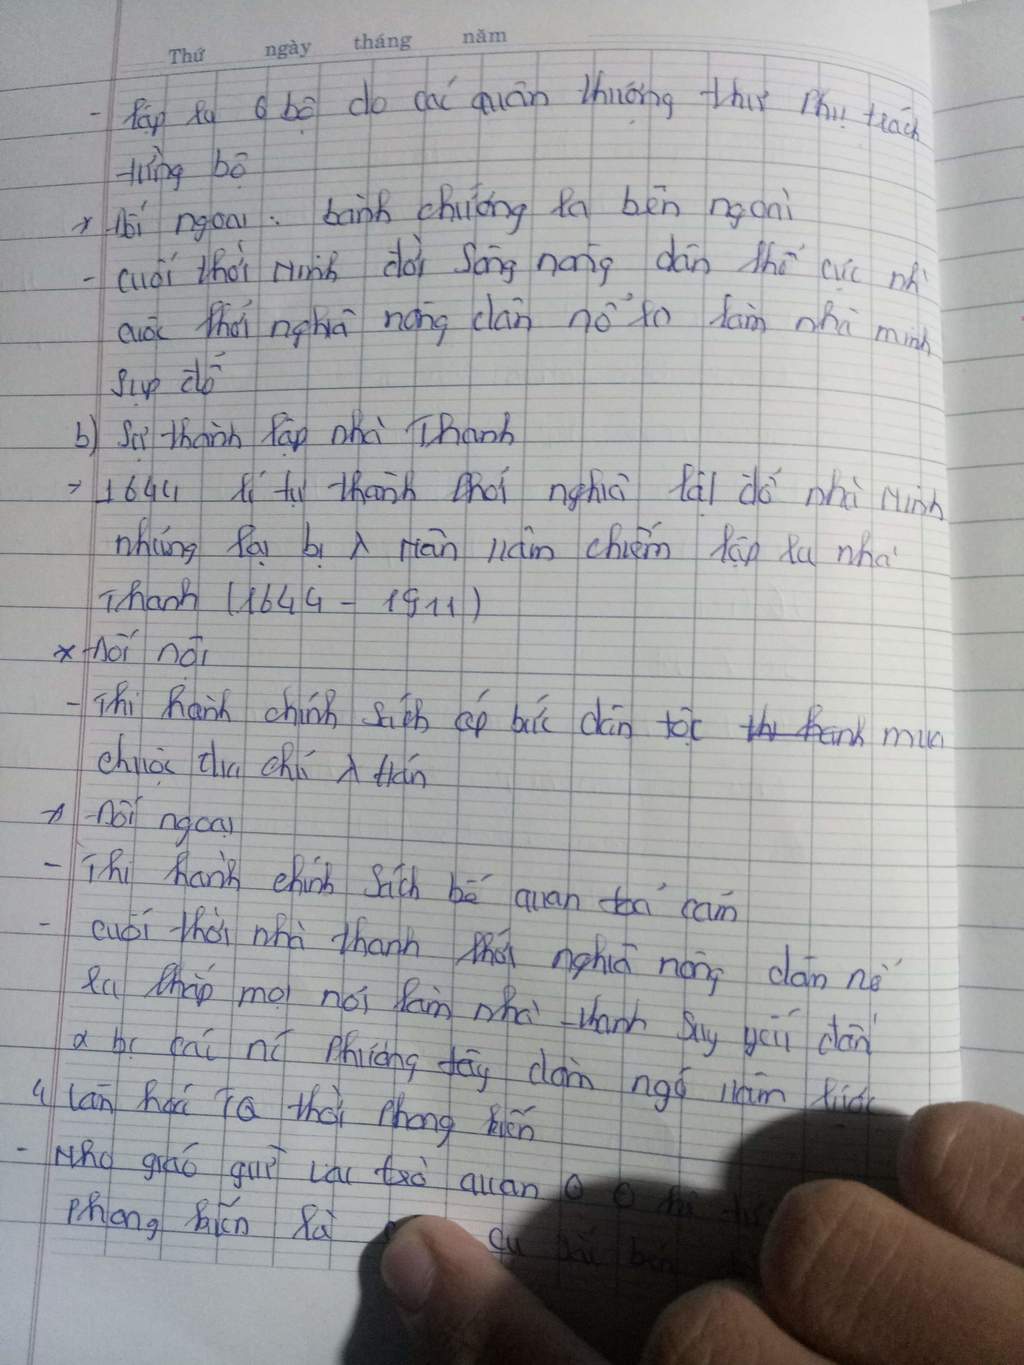 Thứ ngày tháng năm
- lập ra 6 bộ do các quan thượng thư phụ trách
từng bộ
* Đối ngoại: bành chướng ra bên ngoài
- cuối thời Minh đời sống nông dân khổ cực nh
cuộc khởi nghĩa nông dân nổ ra làm nhà minh
sụp đổ
b) Sự thành lập nhà Thanh
- 1644 Lí tự thành khởi nghĩa lật đổ nhà Minh
nhưng lại bị λ Mãn xâm chiếm lập ra nhà
Thanh (1644 - 1911)
* Đối nội
- Thi hành chính sách áp bức dân tộc mua
chuộc địa chủ λ Hán
* Đối ngoại
- Thi hành chính sách bế quan toả cảng
- cuối thời nhà thanh khởi nghĩa nông dân nổ
ra khắp mọi nơi làm nhà thanh suy yếu dần
α bị các nc phương tây dòm ngó xâm lược
4 Văn hoá TQ thời phong kiến
- Nho giáo giữ vai trò quan
phong kiến là